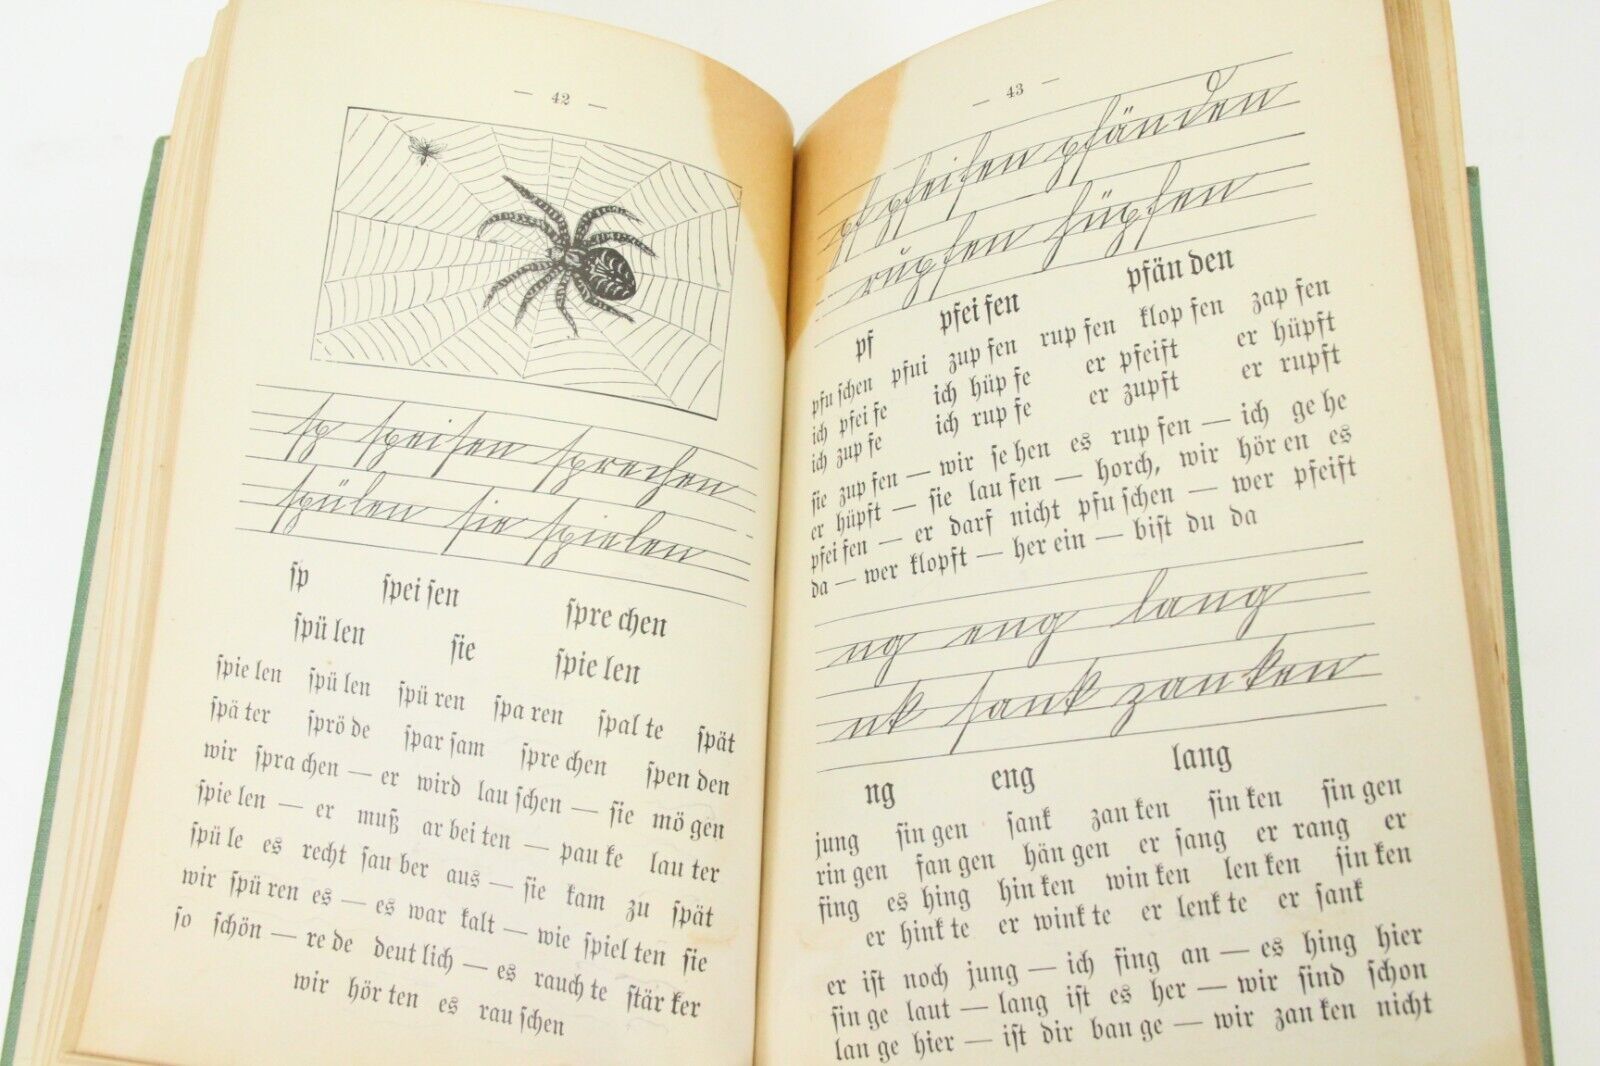 — 42 —
sp speisen sprechen
spülen sie spielen
ſp ſpei ſen ſpre chen
ſpü len ſie ſpie len
ſpie len ſpü len ſpü ren ſpa ren ſpal te ſpät
ſpä ter ſprö de ſpar ſam ſpre chen ſpen den
wir ſpra chen — er wird lau ſchen — ſie mö gen
ſpie len — er muß ar bei ten — pau ke lau ter
ſpü le es recht ſau ber aus — ſie kam zu ſpät
wir ſpü ren es — es war kalt — wie ſpiel ten ſie
ſo ſchön — re de deut lich — es rauch te ſtär ker
wir hör ten es rau ſchen
— 43 —
pf pfeifen pfänden
rupfen hüpfen
pf pfei fen pfän den
pfu ſchen pfui zup fen rup fen klop fen zap fen
ich pfei fe ich hüp fe er pfeift er hüpft
ich zup fe ich rup fe er zupft er rupft
ſie zup fen — wir ſe hen es rup fen — ich ge he
er hüpft — ſie lau fen — horch, wir hör en es
pfei fen — er darf nicht pfu ſchen — wer pfeift
da — wer klopft — her ein — biſt du da
ng eng lang
nk sank zanken
ng eng lang
jung ſin gen ſank zan ken ſin ken ſin gen
rin gen fan gen hän gen er ſang er rang er
fing es hing hin ken win ken len ken ſin ken
er hink te er wink te er lenk te er ſank
er iſt noch jung — ich fing an — es hing hier
ſin ge laut — lang iſt es her — wir ſind ſchon
lan ge hier — iſt dir ban ge — wir zan ken nicht